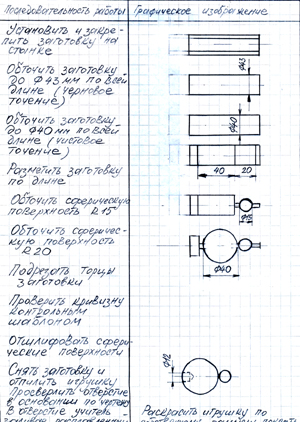 Последовательность работы
Графическое изображение
Установить и закре-
пить заготовку на
станке
Обточить заготовку
до Ф43 мм по всей
длине (черновое
точение)
Ф43
Обточить заготовку
до Ф40 мм по всей
длине (чистовое
точение)
Ф40
Разметить заготовку
по длине
40
20
Обточить сферическую
поверхность R15
Ф15
Обточить сфериче-
скую поверхность
R20
Ф40
Подрезать торцы
заготовки
Проверить кривизну
контрольным
шаблоном
Отшлифовать сфери-
ческие поверхности
Снять заготовку и
отпилить игрушку
Просверлить отверстие
в основании по чертежу
В отверстие учитель
Ф12
Раскрасить игрушку по